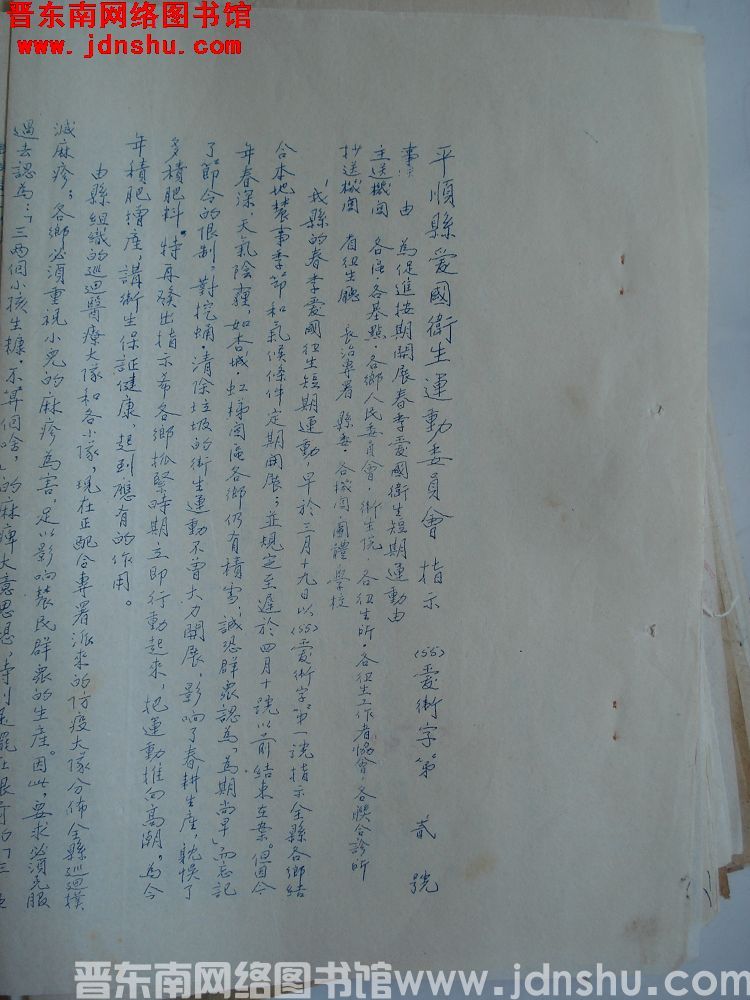 晋东南网络图书馆
www.jdnshu.com
平順縣愛國衛生運動委員會指示 (55)愛衛字第貳號
事由 為促進按期開展春季愛國衛生短期運動由
主送機関 各區各基點·各鄉人民委員會·衛生院 各衛生所·各衛生工作者協會·各聯合診所
抄送機関 省衛生廳 長治專署 縣委·各機関團體學校
我縣的春季愛國衛生短期運動,早於三月十九日以(55)愛衛字第一號指示全縣各鄉結
合本地農事季節和氣候條件定期開展;並規定至遲於四月十號以前結束在案。但因今
年春深,天氣陰霾,如杏城虹梯関區各鄉仍有積雪;誠恐群衆認為"為期尚早"而忘記
了節令的限制,對挖蛹·清除垃圾的衛生運動不曾大力開展,影响了春耕生產,耽悞了
多積肥料。特再發出指示希各鄉抓緊時期立即行動起來,把運動推向高潮。為今
年積肥增產,講衛生保証健康,起到應有的作用。
由縣組織的巡迴醫療大隊和各小隊,現在正配合專署派來的防疫大隊分佈全縣巡迴撲
滅麻疹;各鄉必須重視小兒的麻疹為害,足以影响農民群衆的生產。因此,要求必須克服
過去認為:"三兩個小孩生糠·不算個啥"的麻痺大意思想,特別是
晋东南网络图书馆www.jdnshu.com